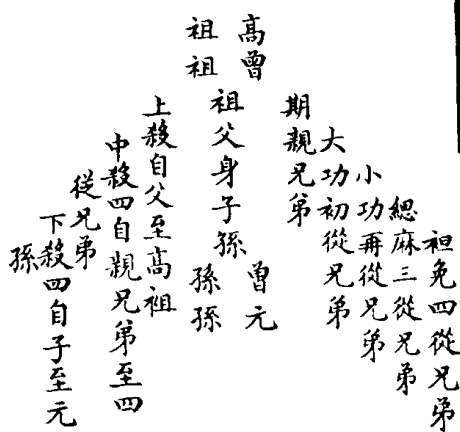 袒免四從兄弟
緦麻三從兄弟
小功再從兄弟
大功初從兄弟
期親兄弟
高曾
祖祖
祖父身子孫
曾元
孫孫
上殺自父至高祖
中殺四自親兄弟至四
從兄弟
下殺四自子至元
孫